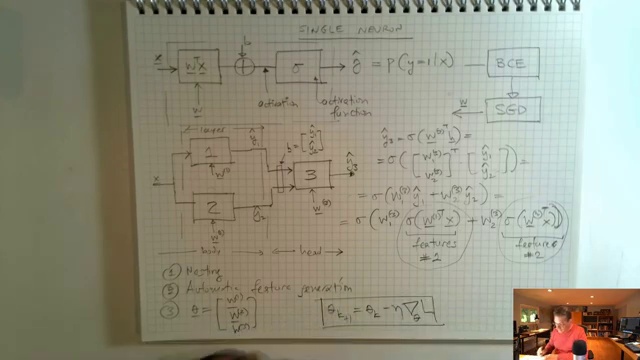 SINGLE NEURON
x → wᵀx → + → σ → ŷ = p(y=1|x) — BCE
b
w
activation
activation function
w
SGD
layer
ŷ₁
1
w⁽¹⁾
x
2
w⁽²⁾
ŷ₂
h = [ŷ₁ ŷ₂]
3
w⁽³⁾
ŷ₃
body
head
ŷ₃ = σ(w⁽³⁾ᵀh) =
= σ([w₁⁽³⁾ w₂⁽³⁾]ᵀ [ŷ₁ ŷ₂]) =
= σ(w₁⁽³⁾ŷ₁ + w₂⁽³⁾ŷ₂) =
= σ(w₁⁽³⁾ σ(w⁽¹⁾ᵀx) + w₂⁽³⁾ σ(w⁽²⁾ᵀx))
features #2
features #2
① Nesting
② Automatic feature generation
③ θ = [w⁽¹⁾ w⁽²⁾ w⁽³⁾]
θₖ₊₁ = θₖ - η∇_θ L